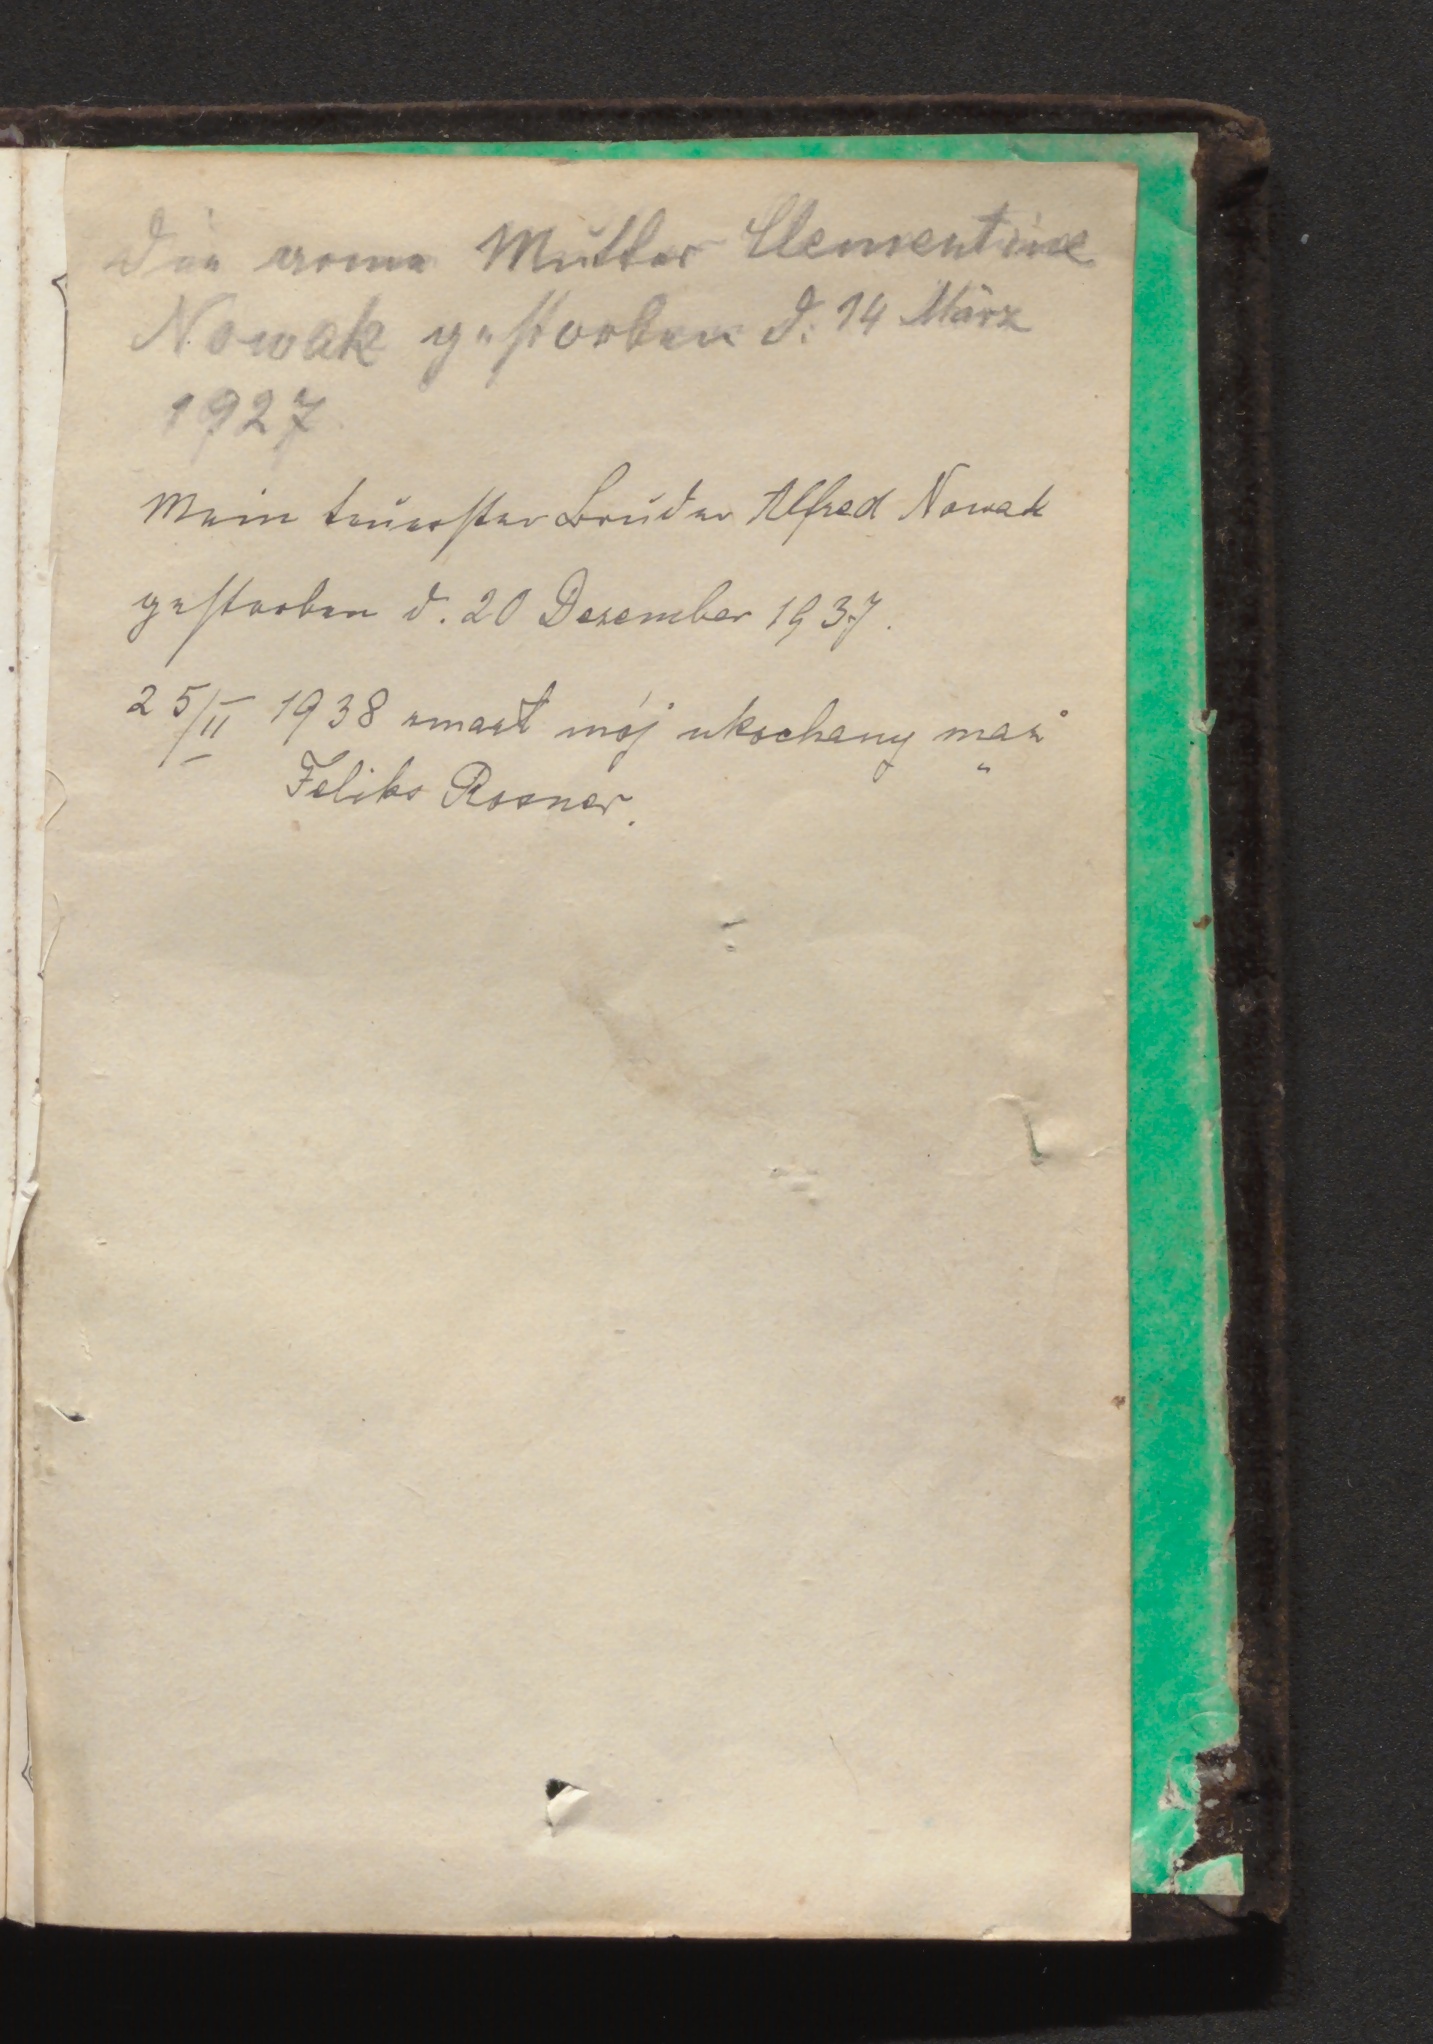 Die arme Mutter Clementine
Nowak gestorben d. 14 März
1927
Mein teuerster Bruder Alfred Nowak
gestorben d. 20 Dezember 1937.
25/II 1938 zmarł mój ukochany mąż
Feliks Rosner.